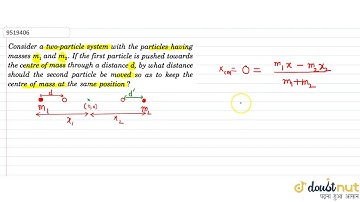 9519406
Consider a two-particle system with the particles having
masses m₁ and m₂. If the first particle is pushed towards
the centre of mass through a distance d, by what distance
should the second particle be moved so as to keep the
centre of mass at the same position ?
x_cm = 0 = (m₁x - m₂x₂)/(m₁+m₂)
d d'
m₁ (0,0) m₂
x₁ x₂
doubtnut
पढ़ना हुआ आसान